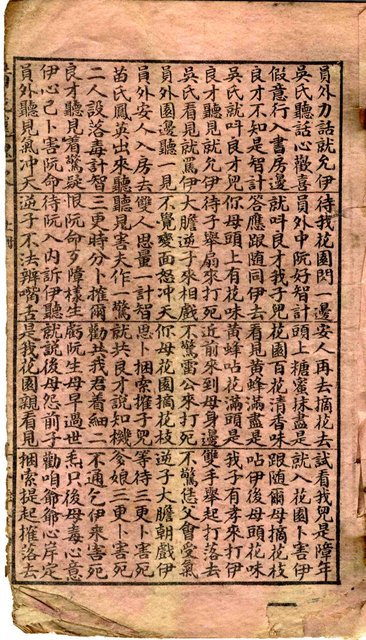 員外力話就允伊 待我花園門一邊 安人再去摘花去 試看我兒是障年
吳氏聽話心歡喜 員外中阮好智計 頭上糖蜜抹盡是 就入花園卜害伊
假意行入書房邊 就叫良才我子兒 花園百花清香味 跟隨爾母摘花枝
良才不知是智計 答應跟隨同伊去 看見黃蜂滿盡是 咕伊後母頭花味
吳氏就叫良才兒 你母頭上有花味 黃蜂咕花滿頭是 我子有孝來打伊
良才聽見就允伊 待子舉扇來打死 近前來到母身邊 雙手舉起打落去
吳氏看見就罵伊 大膽逆子來相戲 不驚雷公來打死 不驚恁父會受氣
員外園邊聽一見 不覺變面怒冲天 你母花園摘花枝 逆子大膽朝戲伊
員外安人入房去 雙人思量一計智 思卜捆索摧子兒 等待三更卜害死
苗氏鳳英出來聽 聽見害夫作一驚 就共良才說知機 爹娘三更卜害死
二人設落毒計智 三更時分卜摧爾 勸共我君着細二 不通乞伊來害死
良才聽見着驚疑 恨阮命歹障樣生 虧阮生母早過世 只後母毒心意
伊心己卜害阮命 待阮入內訴伊聽 就說後母怨前子 勸咱爺爺心岸定
員外聽見氣冲天 逆子不法辨嘴舌 是我花園親看見 捆索提起摧落去